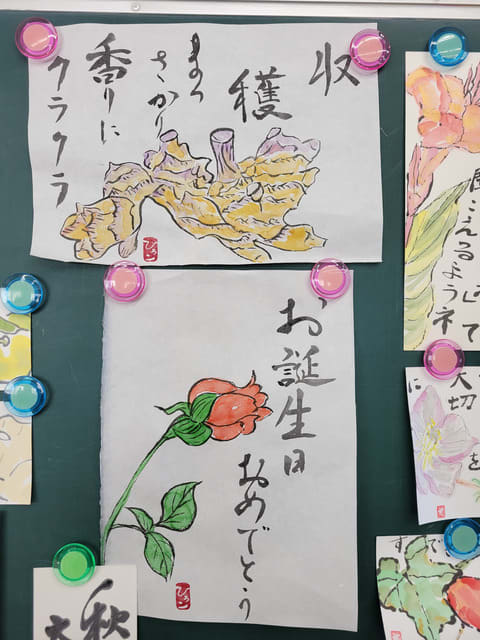 収
穫
まっ
さかり
香りに
クラクラ
お誕生日
おめでとう
こえるようネ
大切
を
に
秋